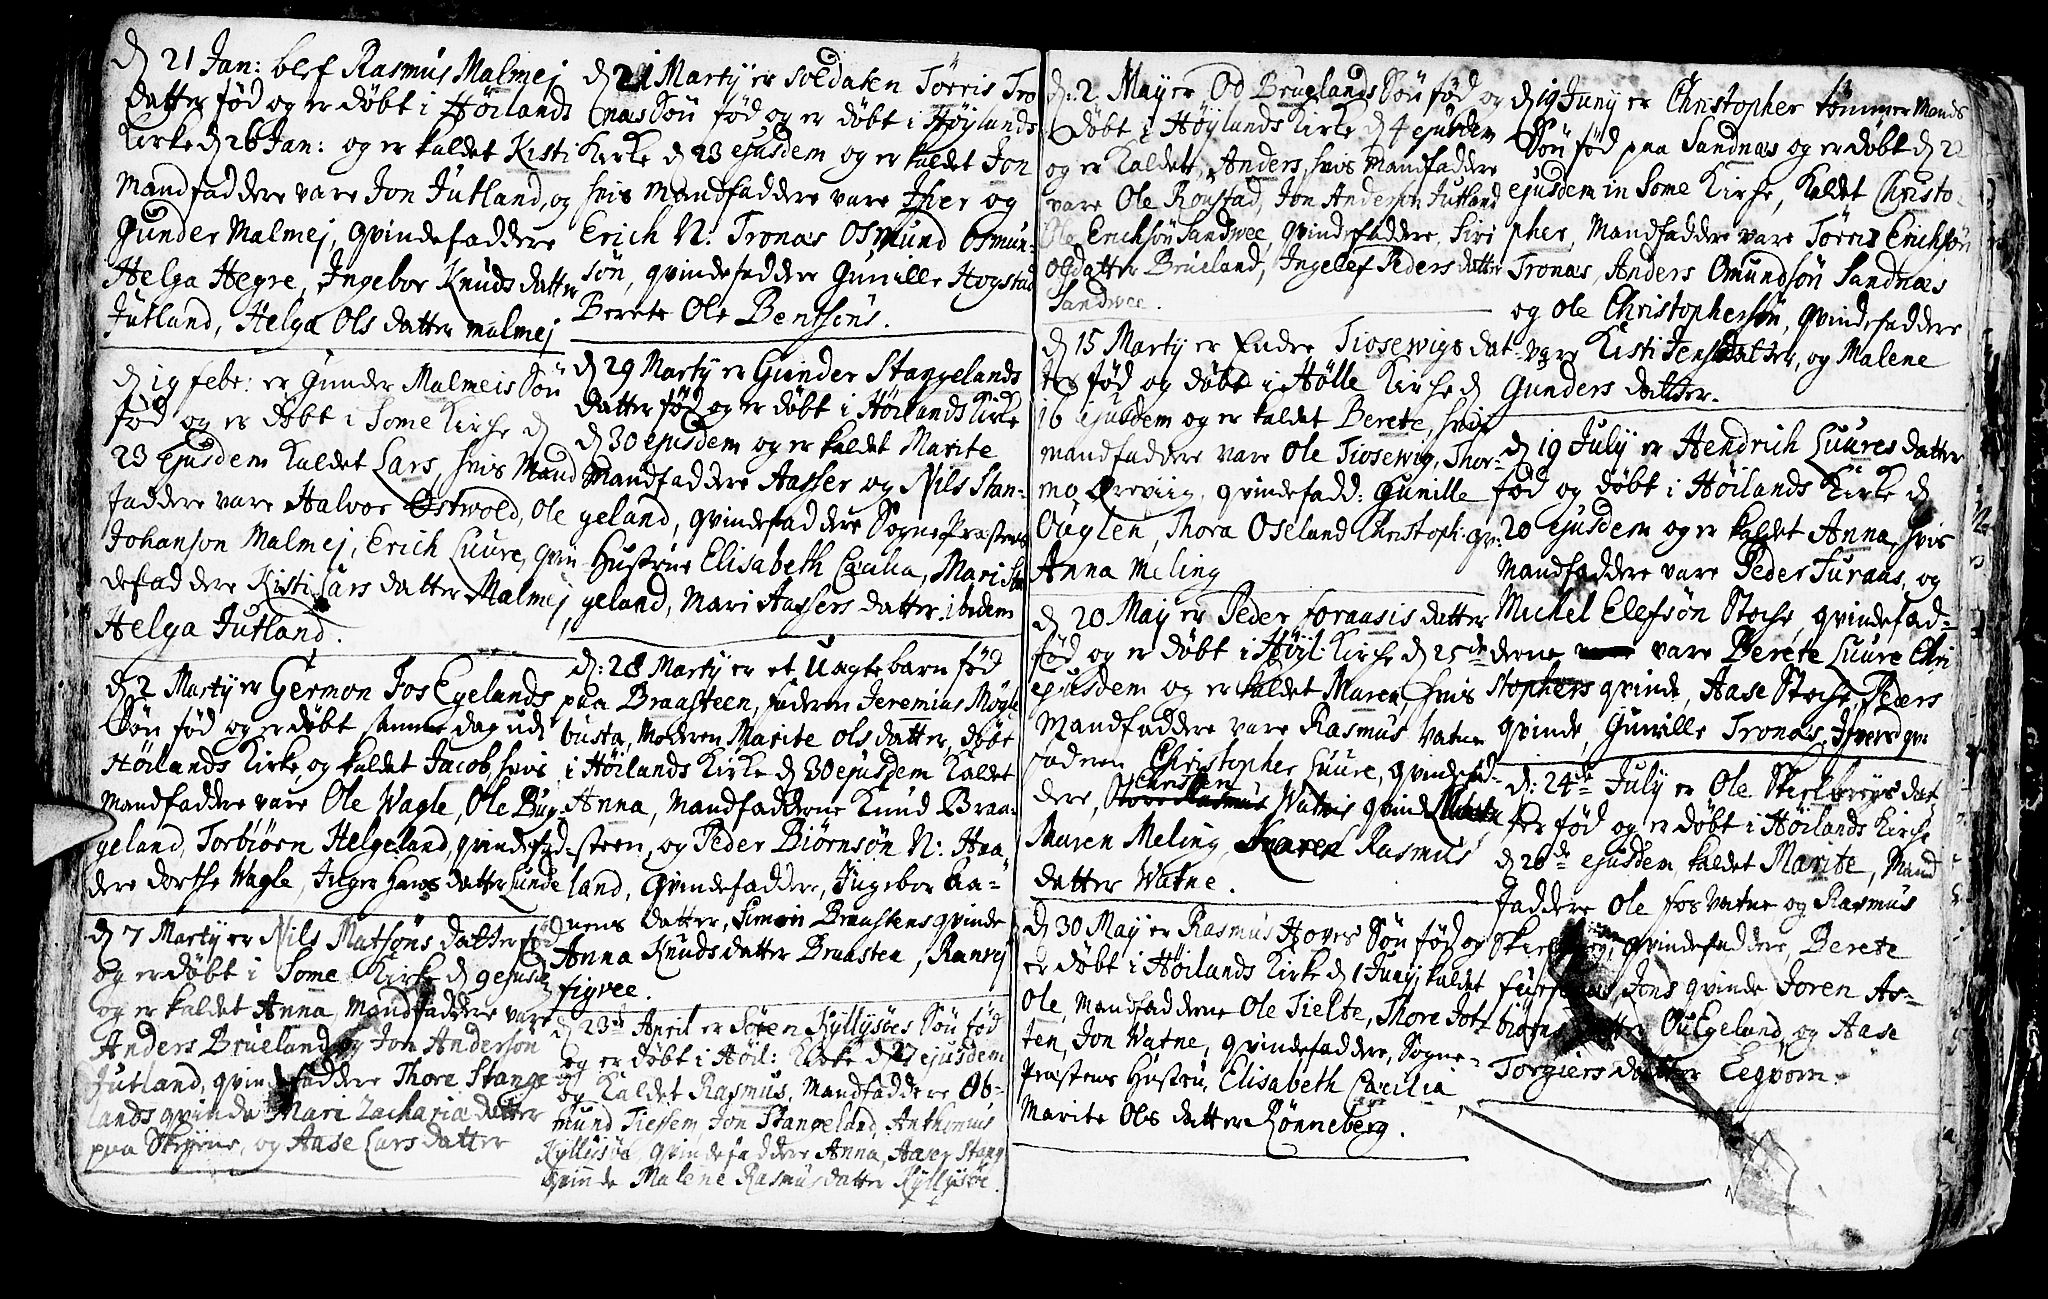 d 21 Jan: blef Rasmus Malmej
datter fød og er døbt i Høilands
Kirke d 26 Jan: og er kaldet Kisti
Mandfaddere vare Jon Jutland, og
Gunder Malmej, qvindefaddere
Helga Hegre, Ingebor Knuds datter
Jutland, Helga Ols datter malmej
d 19 febr: er Gunder Malmeis Sön
fød og er døbt i Some Kirke d
23 ejusdem kaldet Lars, hvis Mand
faddere vare Halvor Ostwold, Ole
Johanson Malmej, Erich Luure, qvin
defaddere Kisti Lars datter Malmej,
Helga Jutland.
d 2 Martij er Germon Jos Egelands
Sön fød og er døbt samme dag udi
Høilands Kirke og kaldet Jacob, hvis
Mandfaddere vare Ole Wagle, Ole Bug-
geland, Torbiörn Helgeland, qvindefad-
dere dorthe Wagle, Inger Hans datter Lunde
d 7 Martij er Nils Matsöns datter fød
og er døbt i Some Kirke d 9 ejusde
og er kaldet Anna, Mandfaddere vare
Anders Brueland og Jon Anderson
Jutland, qvindefaddere Thore Stange
lands qvinde Mari Zacharia datter
paa Skeiene, og Aase Lars datter
d 21 Martij er soldaten Törris Tro
næs Sön fød og er døbt i Høylands
Kirke d 23 ejusdem og er kaldet Jon
hvis Mandfaddere vare Ifver og
Erich N: Tronæs Osmund Osmun-
sön, qvindefaddere Gunille Hogstad
Berete Ole Bentsöns.
d 29 Martij er Gunder Stangelands
datter fød og er døbt i Høilands Kirke
d 30 ejusdem og er kaldet Marite
Mandfaddere Aasser og Nils Stan-
geland, qvindefaddere Sogne Præstens
Hustrue Elisabeth Cæcilia, Mari Stan
geland, Mari Aassers datter ibidem
d: 28 Martij er et Uægte barn fød
paa Braasteen, faderen Jeremias Mögle
busta, Moderen Marite ols datter, døbt
i Høilands Kirke d 30 ejusdem kaldet
Anna, Mandfadderne Knud Braa-
steen, og Peder Biörnsön N: Haa
land, qvindefaddere, Ingebor Aa-
nens datter, Simon Braastens qvinde
Anna Knuds datter Braasten, Ranvej
figvee.
d 23de April er Sören Kyllysöes Sön fød
og er døbt i Høil: Kirke d 27 ejusdem
og kaldet Rasmus, Mandfaddere Ob-
mund Tiessem, Jon Stangeland, Anthonius
Kyllisöe, qvindefaddere Anna, Aaser Stang
qvinde Malene Rasmus datter Kyllysöe.
d: 2 May er Od Bruglands Sön fød og
døbt i Høylands Kirke d 4 ejusdem
og er kaldet Anders, hvis mandfaddere
vare Ole Roustad, Jon Anderson Jutland
Ole Erichsön Sandwee, qvindefaddere, Siri
Olsdatter Brueland, Ingelef Peders datter
Sandwee.
d 15 Martij er Endre Tiosewigs dat-
ter fød og døbt i Hölle Kirke d
16 ejusdem og er kaldet Berete, hvis
mandfaddere vare Ole Tiosewig, Thor-
mo Oreviig, qvindefadd: Gunille
Ouglen, Thora Oseland Christoph: qvi:
Anna Meling
d 20 May er Peder foraasis datter
fød og er døbt i Høyl: Kirke d 25de
ejusdem og er kaldet Maren, hvis
Mandfaddere vare Rasmus Vatne
faderen Christopher Luure, qvindefad-
dere, Karsten Watnis qvinde
Maren Meling, Karen Rasmus
datter Watne.
d 30 May er Rasmus Hoves Sön fød og
er døbt i Høilands Kirke d 1 Junij kaldet
Ole, Mandfadderne Ole Tielte, Thore Jot-
ten, Jon Watne, qvindefaddere, Sogne-
Præstens Hustru, Elisabeth Cæcilia,
Marite Ols datter Rönneberg.
d 19 Juny er Christopher tömmer Mands
Sön fød paa Sandnæs og er døbt d 2
ejusdem in Some Kirke, kaldet Christo-
pher, Mandfaddere vare Törris Erichsön
Tronæs, Anders Omundsön Sandnæs
og Ole Christophersön, qvindefaddere
vare Kisti Jens datter, og Malene
Gunders datter.
d 19 July er Hendrich Luures datter
fød og døbt i Høilands Kirke d
20 ejusdem og er kaldet Anna, hvis
Mandfaddere vare Peder Furaas, og
Michel Elefsön Stoche, qvindefad-
derne vare Berete Luure Chri
stophers qvinde, Aase Stoche, Peders
qvinde, Gunille Tronæs, Ifvers qvi
d: 24de July er Ole Skielbreys dat
ter fød og er døbt i Høilands Kirke
d 26de ejusdem kaldet Marite, Mand
faddere Ole fos Vatne og Rasmus
qvindefaddere, Berete
Jons qvinde Joren As-
biörns datter Ouegeland, og Aase
Torgiers datter Eegporn.